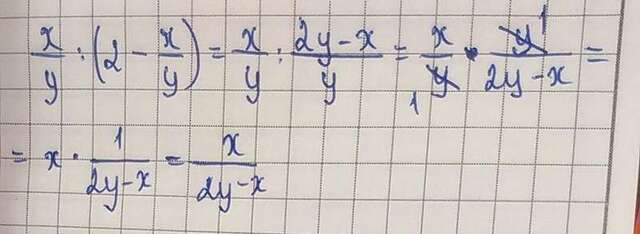 x/y : (2 - x/y) = x/y : (2y-x)/y = x/y · y/(2y-x) =
= x · 1/(2y-x) = x/(2y-x)